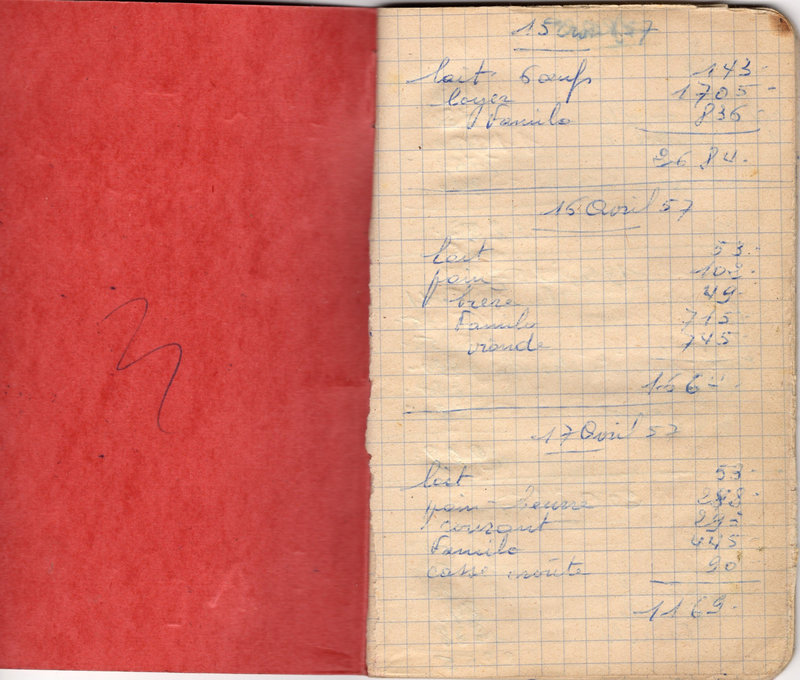 15 Avril 57
lait 6 œufs 143
loyer 1705
Familo 836
2684
16 Avril 57
lait 53
pain
bière 49
Familo 715
viande 745
17 Avril 57
lait 53
pain - beurre 288
courant 293
Familo 445
casse croûte 90
1169